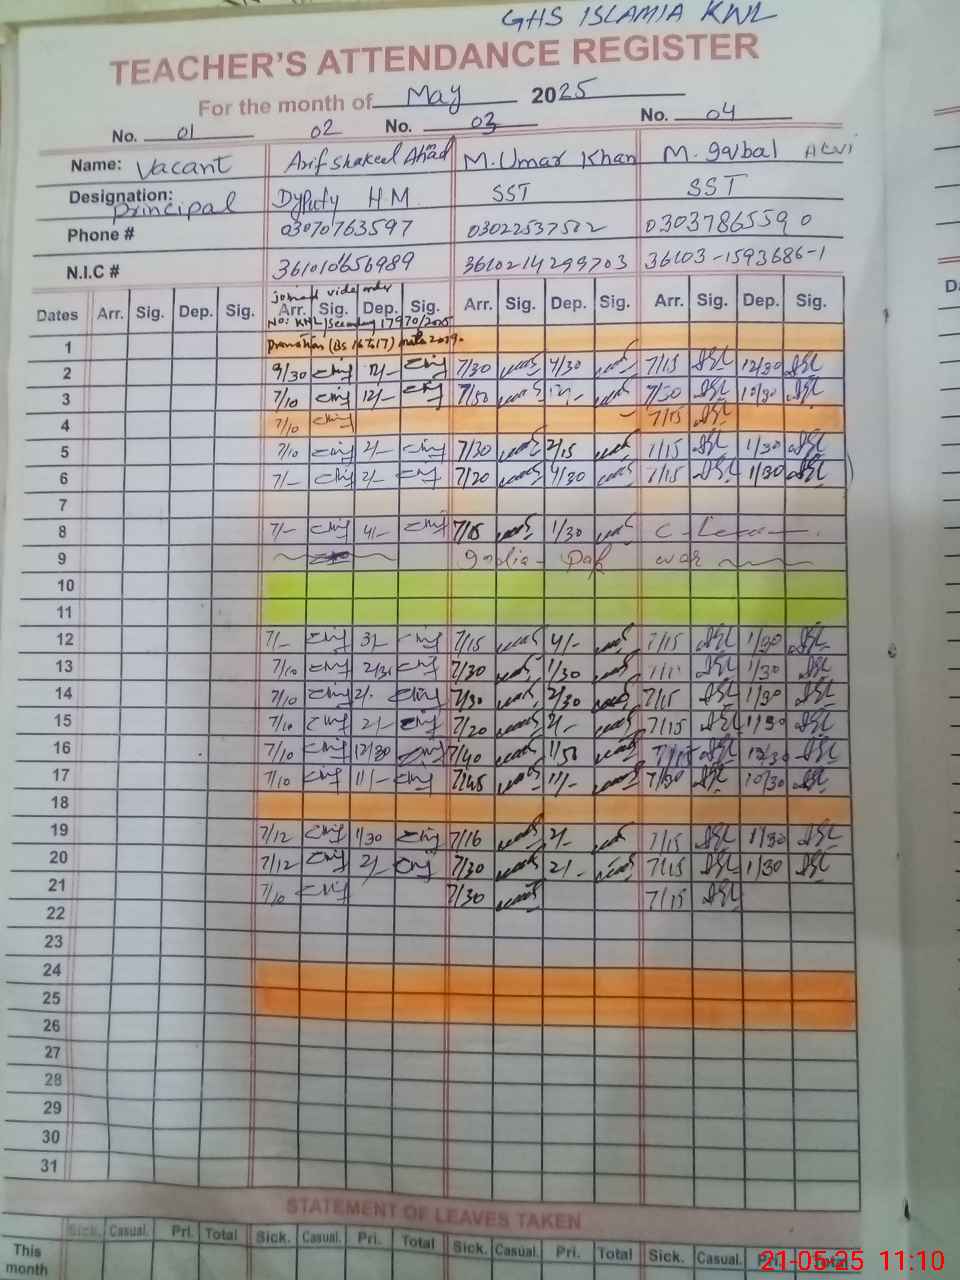 GHS ISLAMIA KWL
TEACHER'S ATTENDANCE REGISTER
For the month of May 2025
No. 01 02 No. 03 No. 04
Name: Vacant Arif Shakeel Ahad M. Umar Khan M. Iqbal ALVI
Designation: Principal Dyputy H M SST SST
Phone # 03070763597 03022537502 03037865590
N.I.C # 361010656989 3610214299703 36103-1593686-1
joined vide order
Dates Arr. Sig. Dep. Sig. Arr. Sig. Dep. Sig. Arr. Sig. Dep. Sig. Arr. Sig. Dep. Sig.
No: KWL/Secondary 17970/2025
1 promotion (Bs 16 to 17)
2 9/30 12/- 7/30 4/30 7/15 12/30
3 7/10 12/- 7/50 12/- 7/50 10/30
4 7/10 7/15
5 7/10 2/- 7/30 2/15 7/15 1/30
6 7/- 2/- 7/20 4/30 7/15 1/30
7
8 7/- 4/- 7/15 1/30 C- Leave
9 India - Pak war
10
11
12 7/- 3/- 7/15 4/- 7/15 1/30
13 7/10 2/30 7/30 1/30 1/30
14 7/10 2/- 7/30 2/30 7/15 1/30
15 7/10 2/- 7/20 2/- 7/15 1/30
16 7/10 12/30 7/40 1/50 7/15 12/30
17 7/10 11/- 7/45 11/- 7/30 10/30
18
19 7/12 1/30 7/16 2/- 7/15 1/30
20 7/12 2/- 7/30 2/- 7/15 1/30
21 7/10 7/30 7/15
22
23
24
25
26
27
28
29
30
31
STATEMENT OF LEAVES TAKEN
Sick. Casual. Pri. Total Sick. Casual. Pri. Total Sick. Casual. Pri. Total Sick. Casual. Pri. Total
This month
21-05-25 11:10